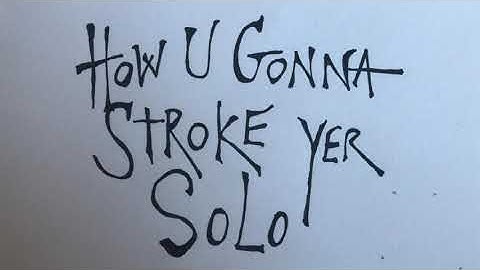 HOW U GONNA
STROKE YER
SOLO